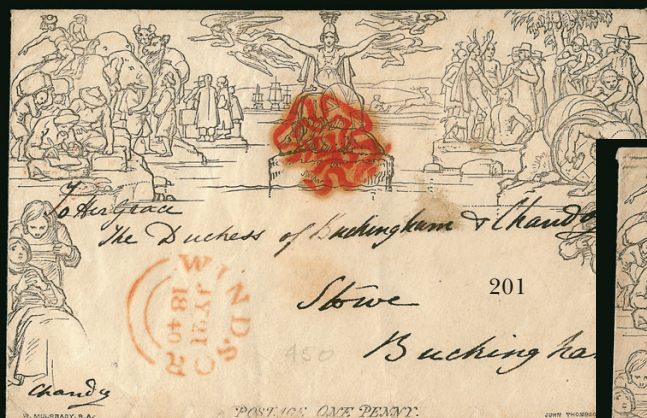 To Her Grace
The Duchess of Buckingham & Chandos
Stowe
201
WINDSOR
JY 21
1840
450
Buckingha
Chandos
W. MULREADY, R.A.
POSTAGE ONE PENNY.
JOHN THOMPSO